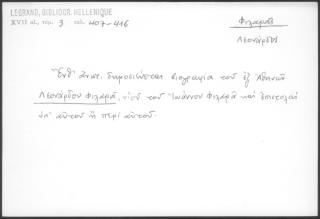 LEGRAND, BIBLIOGR. HELLENIQUE
XVII αἰ., τόμ. 3 σελ. 407-416
Φιλαρᾶς
Λεονάρδος
Ἔνθ' ἀνωτ. δημοσιεύεται βιογραφία τοῦ ἐξ Ἀθηνῶν
Λεονάρδου Φιλαρᾶ, υἱοῦ τοῦ Ἰωάννου Φιλαρᾶ καὶ ἐπιστολαὶ
ὑπ' αὐτοῦ ἢ περὶ αὐτοῦ.